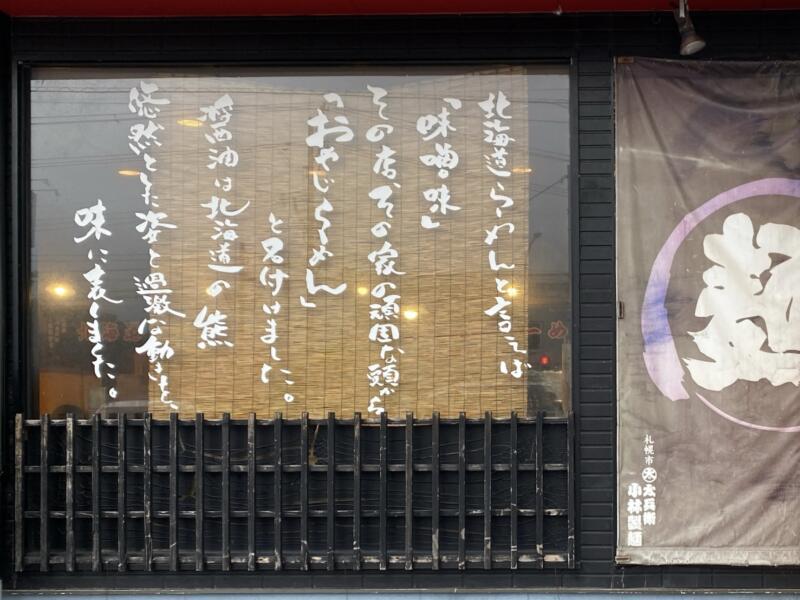 北海道らーめんと言えば
「味噌味」
その店、その家の頑固な頭から
「おやじらーめん」
と名付けました。
醤油は北海道の熊
悠然とした姿と過激な動きを、
味に表しました。
麺
札幌市
太兵衛
小林製麺